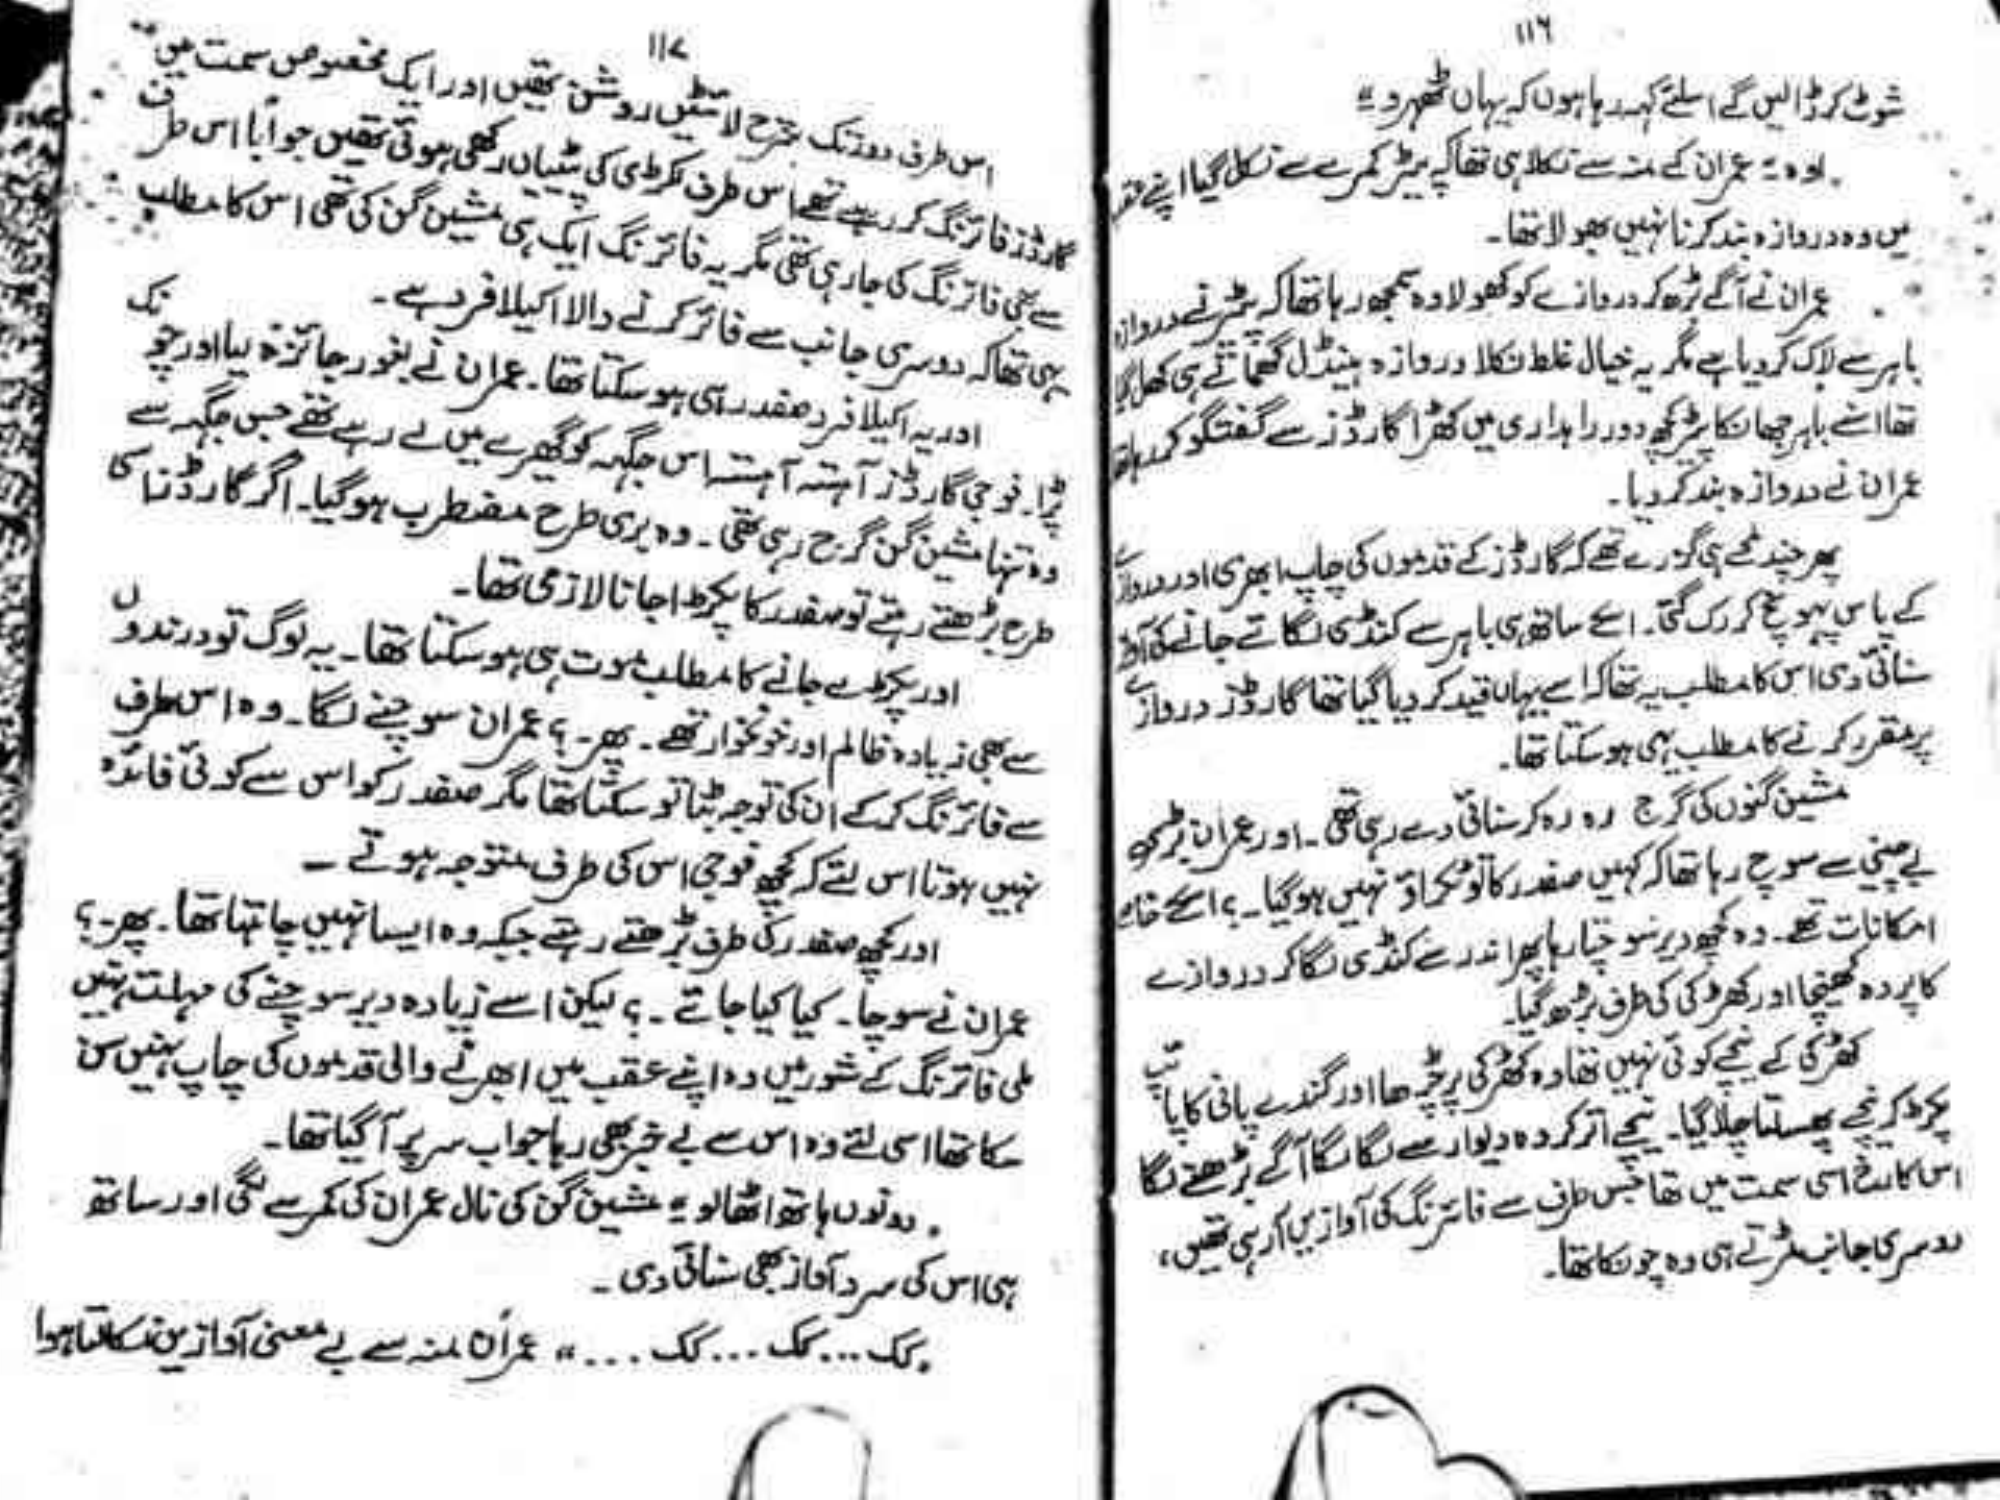 ۱۱۶
شوٹ کر ڈالیں گے اسلئے کہہ رہا ہوں کہ یہاں ٹھہرو"
"اوہ" عمران کے منہ سے نکلا ہی تھا کہ پیٹر کمرے سے نکل گیا اپنے
میں وہ دروازہ بند کرنا نہیں بھولا تھا۔
عمران نے آگے بڑھ کر دروازے کو کھولا وہ سمجھ رہا تھا کہ پیٹر نے دروازہ
باہر سے لاک کر دیا ہے مگر یہ خیال غلط نکلا دروازہ ہینڈل گھماتے ہی کھل گیا
تھا اس نے باہر جھانکا پیٹر کچھ دور راہداری میں کھڑا گارڈز سے گفتگو کر رہا تھا
عمران نے دروازہ بند کر دیا۔
پھر چند لمحے ہی گزرے تھے کہ گارڈز کے قدموں کی چاپ ابھری اور دروازے
کے پاس پہونچ کر رک گئی۔ اسکے ساتھ ہی باہر سے کنڈی لگائے جانے کی آواز
سنائی دی اس کا مطلب یہ تھا کہ اسے یہاں قید کر دیا گیا تھا گارڈز دروازے
پر مقرر کرنے کا مطلب یہی ہو سکتا تھا۔
مشین گنوں کی گرج رہ رہ کر سنائی دے رہی تھی۔ اور عمران بڑی
بے چینی سے سوچ رہا تھا کہ کہیں صفدر کا تو ٹکراؤ نہیں ہو گیا۔؟ اسکے خاصے
امکانات تھے۔ وہ کچھ دیر سوچتا رہا پھر اندر سے کنڈی لگا کر دروازے
کا پردہ کھینچا اور کھڑکی کی طرف بڑھ گیا۔
کھڑکی کے نیچے کوئی نہیں تھا وہ کھڑکی پر چڑھا اور گندے پانی کا پائپ
پکڑ کر نیچے پھسلتا چلا گیا۔ نیچے اتر کر وہ دیوار سے لگا لگا آگے بڑھنے لگا
اس کا رخ اسی سمت میں تھا جس طرف سے فائرنگ کی آوازیں آ رہی تھیں،
دوسری جانب مڑتے ہی وہ چونکا تھا۔
۱۱۷
اس طرف دور تک سرچ لائٹیں روشن تھیں اور ایک مخصوص سمت میں
گارڈز فائرنگ کر رہے تھے اس طرف لکڑی کی پیٹیاں رکھی ہوئی تھیں جواباً اس طرف
سے بھی فائرنگ کی جا رہی تھی مگر یہ فائرنگ ایک ہی مشین گن کی تھی اس کا مطلب
یہی تھا کہ دوسری جانب سے فائر کرنے والا اکیلا فرد ہے۔
اور یہ اکیلا فرد صفدر ہی ہو سکتا تھا۔ عمران نے بغور جائزہ لیا اور چونک
پڑا۔ فوجی گارڈز آہستہ آہستہ اس جگہہ کو گھیرے میں لے رہے تھے جس جگہہ سے
وہ تنہا مشین گن گرج رہی تھی۔ وہ بری طرح مضطرب ہو گیا۔ اگر گارڈز اسی
طرح بڑھتے رہتے تو صفدر کا پکڑا جانا لازمی تھا۔
اور پکڑے جانے کا مطلب موت ہی ہو سکتا تھا۔ یہ لوگ تو درندوں
سے بھی زیادہ ظالم اور خونخوار تھے۔ پھر۔؟ عمران سوچنے لگا۔ وہ اس طرف
سے فائرنگ کر کے ان کی توجہ ہٹا تو سکتا تھا مگر صفدر کو اس سے کوئی فائدہ
نہیں ہوتا اس لئے کہ کچھ فوجی اس کی طرف متوجہ ہوتے ۔
اور کچھ صفدر کی طرف بڑھتے رہتے جبکہ وہ ایسا نہیں چاہتا تھا۔ پھر۔؟
عمران نے سوچا۔ کیا کیا جائے۔؟ لیکن اسے زیادہ دیر سوچنے کی مہلت نہیں
ملی فائرنگ کے شور میں وہ اپنے عقب میں ابھرنے والی قدموں کی چاپ نہیں سن
سکا تھا اسی لئے وہ اس سے بے خبر بھی رہا جو اب سر پر آ گیا تھا۔
"دونوں ہاتھ اٹھا لو" مشین گن کی نال عمران کی کمر سے لگی اور ساتھ
ہی اس کی سرد آواز بھی سنائی دی۔
"کک... کک... کک..." عمران منہ سے بے معنی آوازیں نکالتا ہوا